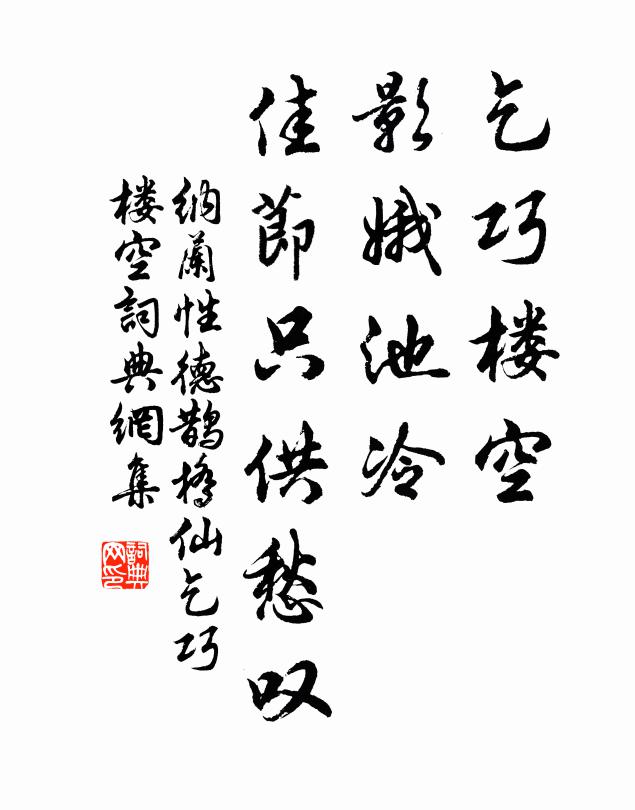 乞巧楼空
影娥池冷
佳節只供愁叹
纳蘭性德鵲橋仙乞巧
楼空詞典網集
詞典网印